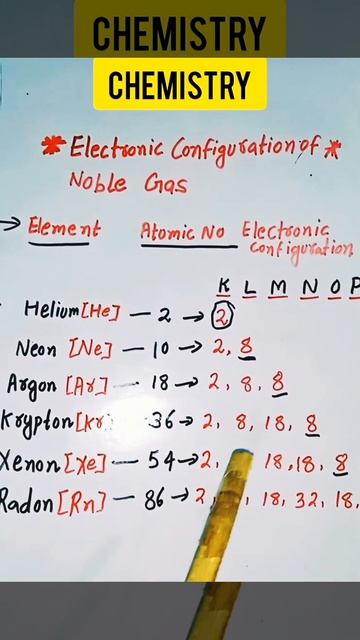 CHEMISTRY
CHEMISTRY
* Electronic Configuration of *
Noble Gas
→ Element Atomic No Electronic
configuration
K L M N O P
Helium [He] — 2 → 2
Neon [Ne] — 10 → 2, 8
Argon [Ar] — 18 → 2, 8, 8
Krypton [Kr] - 36 → 2, 8, 18, 8
Xenon [Xe] — 54 → 2, 18, 18, 8
Radon [Rn] — 86 → 2, 18, 32, 18,